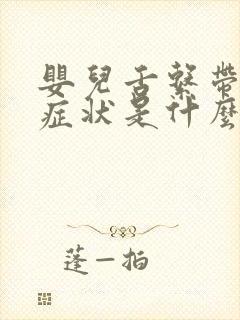 嬰兒舌繫帶
症状是什麼
蓬一拍